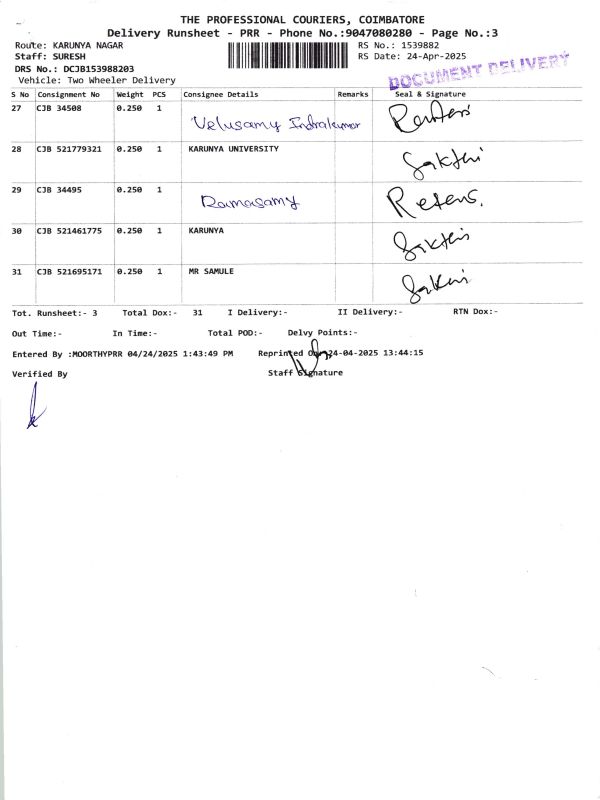 THE PROFESSIONAL COURIERS, COIMBATORE
Delivery Runsheet - PRR - Phone No.:9047080280 - Page No.:3
Route: KARUNYA NAGAR RS No.: 1539882
Staff: SURESH RS Date: 24-Apr-2025
DRS No.: DCJB153988203
DOCUMENT DELIVERY
Vehicle: Two Wheeler Delivery
S No Consignment No Weight PCS Consignee Details Remarks Seal & Signature
27 CJB 34508 0.250 1 Velusamy Indrakumar
28 CJB 521779321 0.250 1 KARUNYA UNIVERSITY Sakthi
29 CJB 34495 0.250 1 Ramasamy
30 CJB 521461775 0.250 1 KARUNYA Sakthi
31 CJB 521695171 0.250 1 MR SAMULE
Tot. Runsheet:- 3 Total Dox:- 31 I Delivery:- II Delivery:- RTN Dox:-
Out Time:- In Time:- Total POD:- Delvy Points:-
Entered By :MOORTHYPRR 04/24/2025 1:43:49 PM Reprinted On: 24-04-2025 13:44:15
Verified By Staff Signature